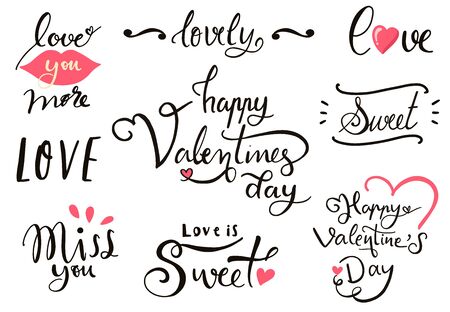 love
you
more
lovely
love
happy
Valentines
day
Sweet
LOVE
Miss
you
Love is
Sweet
Happy
Valentine's
Day